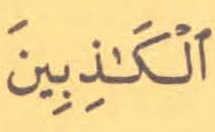 ٱلْكَـٰذِبِينَ